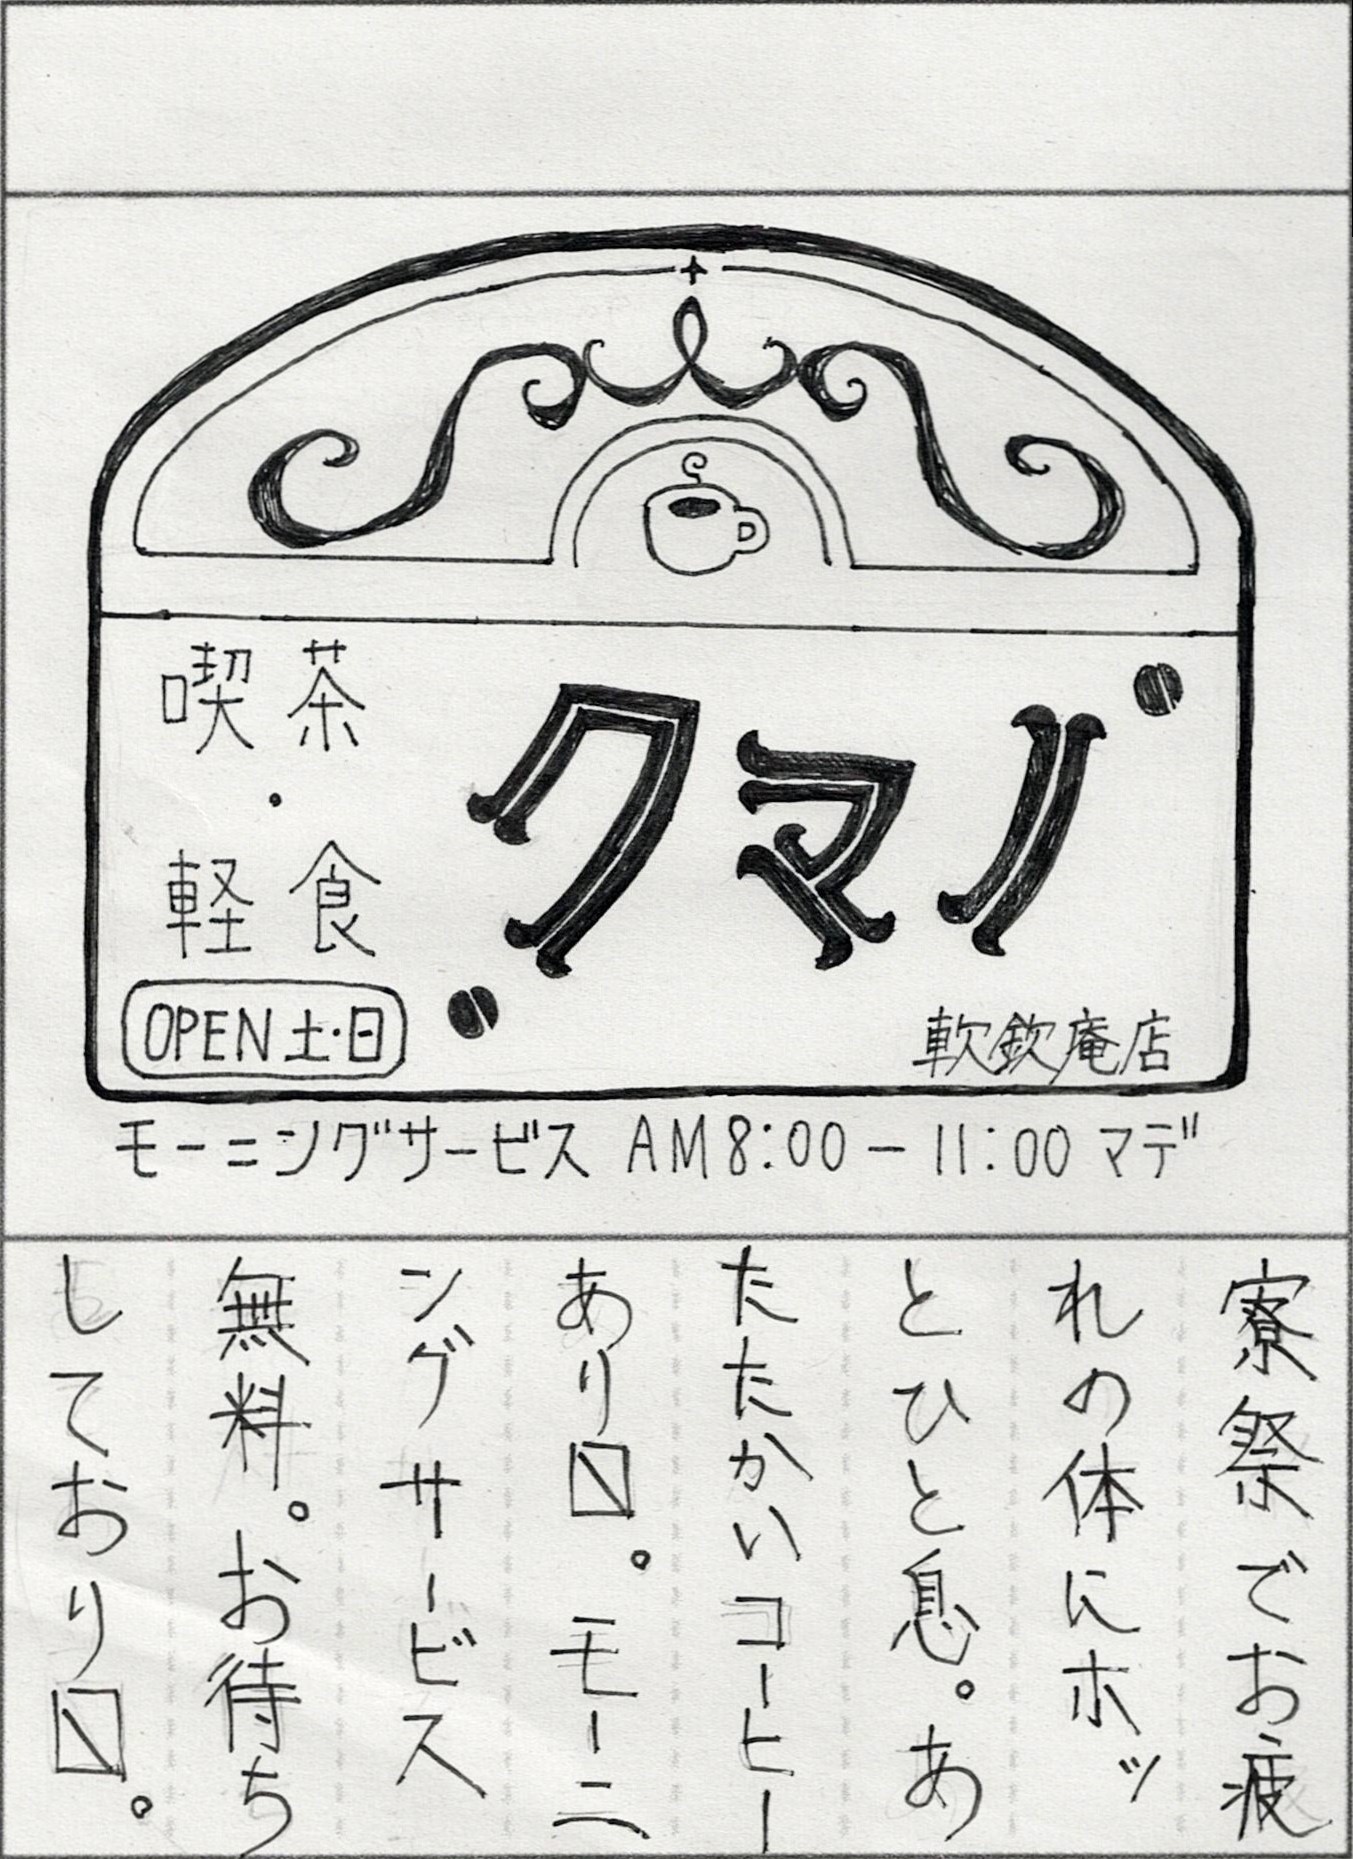 喫茶
・
軽食
クマノ
OPEN 土・日
軟欽庵店
モーニングサービス AM8:00－11:00 マデ
寮祭でお疲
れの体にホッ
とひと息。あ
たたかいコーヒー
あり〼。モーニ
ングサービス
無料。お待ち
しており〼。